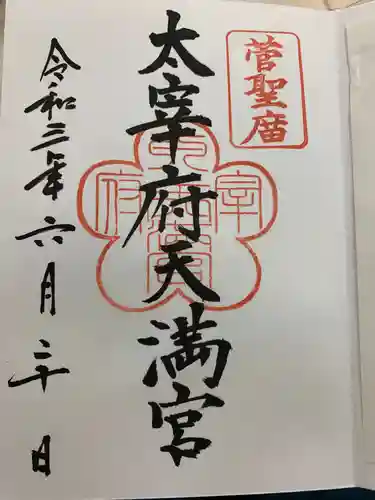 菅聖廟
太宰府天満宮
令和三年六月二十日